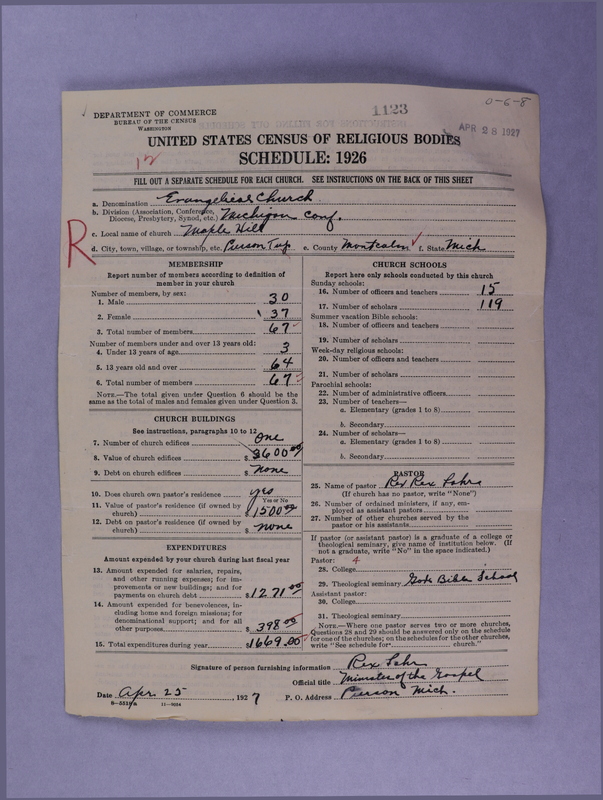 0-6-8
1123
APR 28 1927
DEPARTMENT OF COMMERCE
BUREAU OF THE CENSUS
WASHINGTON
UNITED STATES CENSUS OF RELIGIOUS BODIES
SCHEDULE: 1926
12
FILL OUT A SEPARATE SCHEDULE FOR EACH CHURCH. SEE INSTRUCTIONS ON THE BACK OF THIS SHEET
R
a. Denomination Evangelical Church
b. Division (Association, Conference, Diocese, Presbytery, Synod, etc.) Michigan Conf.
c. Local name of church Maple Hill
d. City, town, village, or township, etc. Pierson Twp e. County Montcalm f. State Mich
MEMBERSHIP
Report number of members according to definition of
member in your church
Number of members, by sex:
1. Male 30
2. Female 37
3. Total number of members 67
Number of members under and over 13 years old:
4. Under 13 years of age 3
5. 13 years old and over 64
6. Total number of members 67
NOTE.—The total given under Question 6 should be
same as the total of males and females given under Question 3.
CHURCH BUILDINGS
See instructions, paragraphs 10 to 12
7. Number of church edifices One
8. Value of church edifices $3600.00
9. Debt on church edifices $ none
10. Does church own pastor's residence yes
Yes or No
11. Value of pastor's residence (if owned by
church) $1500.00
12. Debt on pastor's residence (if owned by
church) $ none
EXPENDITURES
Amount expended by your church during last fiscal year
13. Amount expended for salaries, repairs,
and other running expenses; for im-
provements or new buildings; and for
payments on church debt $1271.00
14. Amount expended for benevolences, in-
cluding home and foreign missions; for
denominational support; and for all
other purposes $398.00
15. Total expenditures during year $1669.00
CHURCH SCHOOLS
Report here only schools conducted by this church
Sunday schools:
16. Number of officers and teachers 15
17. Number of scholars 119
Summer vacation Bible schools:
18. Number of officers and teachers
19. Number of scholars
Week-day religious schools:
20. Number of officers and teachers
21. Number of scholars
Parochial schools:
22. Number of administrative officers
23. Number of teachers—
a. Elementary (grades 1 to 8)
b. Secondary
24. Number of scholars—
a. Elementary (grades 1 to 8)
b. Secondary
PASTOR
25. Name of pastor Rev Rex
(If church has no pastor, write "None")
26. Number of ordained ministers, if any, em-
ployed as assistant pastors
27. Number of other churches served by the
pastor or his assistants
If pastor (or assistant pastor) is a graduate of a college or
theological seminary, give name of institution below. (If
not a graduate, write "No" in the space indicated.)
Pastor: 4
28. College
29. Theological seminary Bible School
Assistant pastor:
30. College
31. Theological seminary
NOTE.—Where one pastor serves two or more churches,
Questions 28 and 29 should be answered only on the schedule
for one of the churches; on the schedules for the other churches,
write "See schedule for church."
Signature of person furnishing information Rex
Official title Minister of the Gospel
Date Apr 25 1927 P. O. Address Pierson Mich.
11—9054